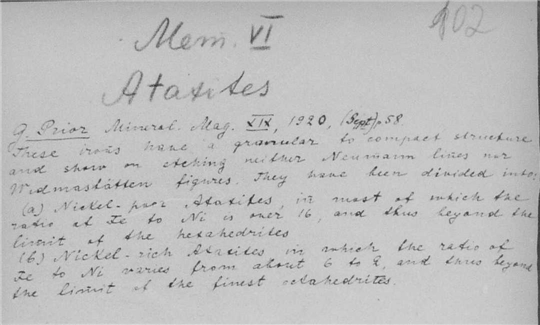 802
Mem. VI
Ataxites
G. Prior Mineral. Mag. XIX, 1920, (Sept) p. 58.
These irons have a granular to compact structure
and show on etching neither Neumann lines nor
Widmastätten figures. They have been divided into:
(a) Nickel-poor Ataxites, in most of which the
ratio of Fe to Ni is over 16, and thus beyond the
limit of the hexahedrites
(b) Nickel-rich Ataxites in which the ratio of
Fe to Ni varies from about 6 to 2, and thus beyond
the limit of the finest octahedrites.